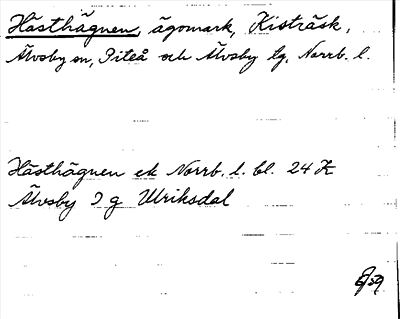 Hästhägnen, ägomark, Kisträsk,
Älvsby sn, Piteå och Älvsby tg, Norrb. l.
Hästhägnen ek Norrb. l. bl. 24 K
Älvsby I g Ulriksdal